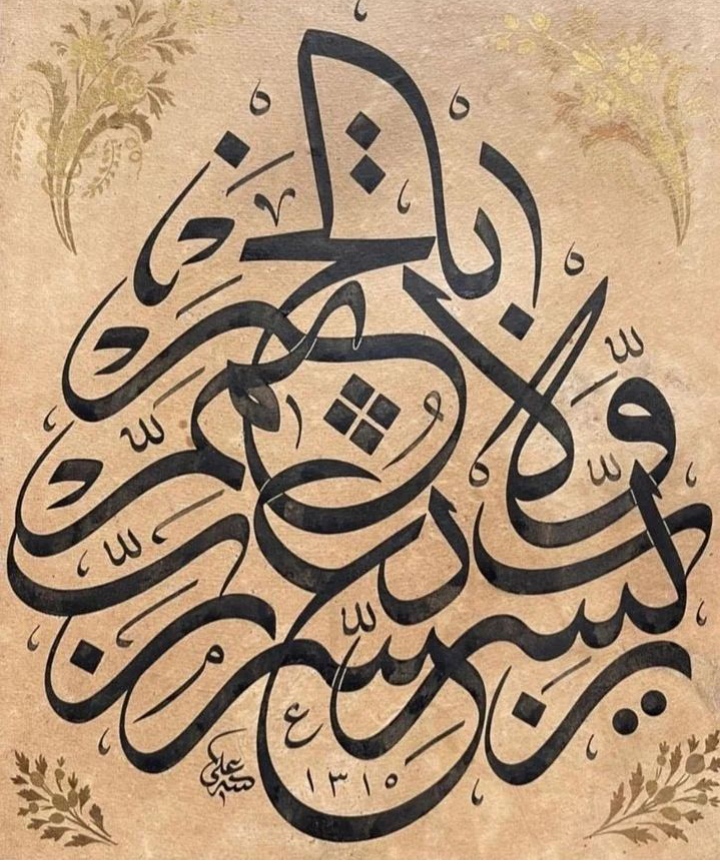 رب يسر ولا تعسر رب تمم بالخير
علي
١٣١٥